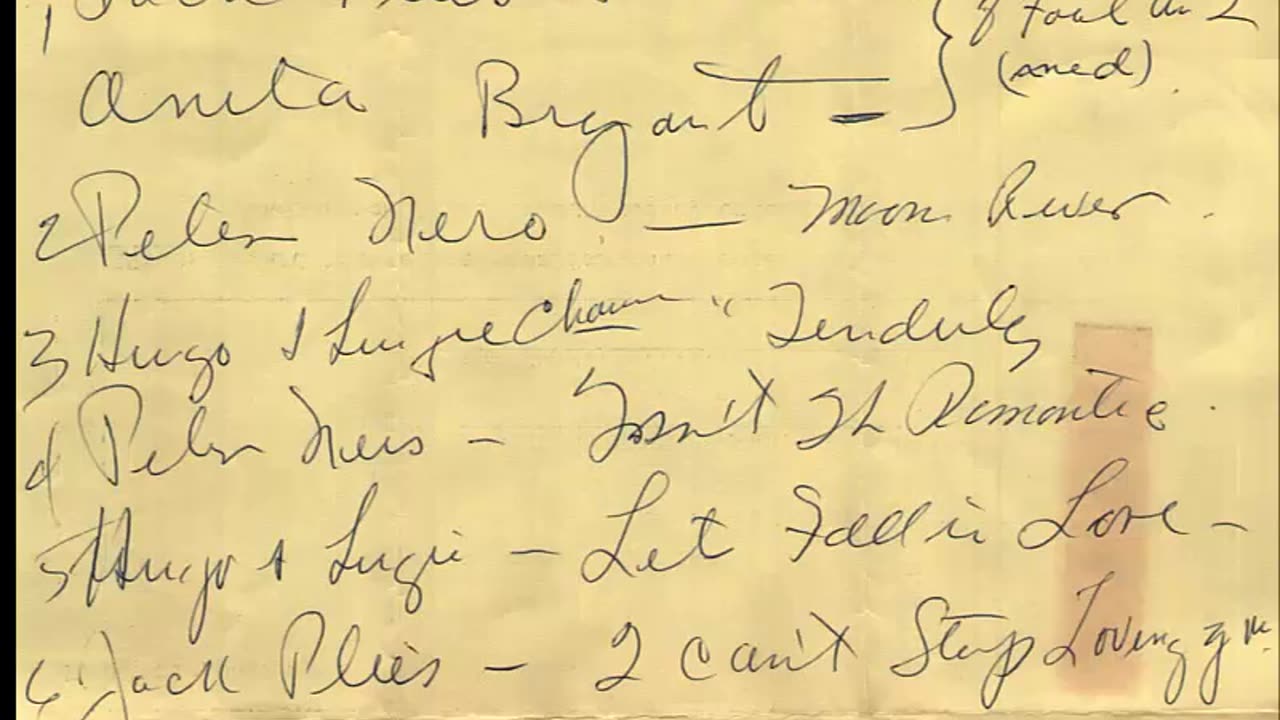 1 Jack
Anita Bryant =
2 Peter Nero — Moon River.
3 Hugo & Luigi Chorus "Tenderly
4 Peter Nero - Isn't It Romantic.
5 Hugo & Luigi - Let Fall in Love -
6 Jack Pleis - I Can't Stop Loving You